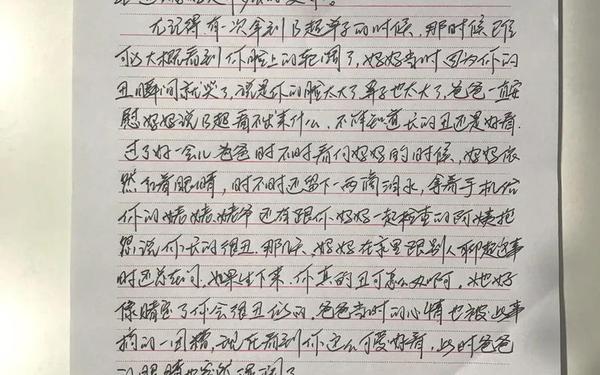 尤记得有一次拿到B超单子的时候，那时候已
可以大概看到你脸上的轮阔了，妈妈当时因为你的
丑瞬间就哭了，说是你的脸太大了，鼻子也太大了，爸爸一直安
慰妈妈说B超看不出来什么，不能知道长的丑还是好看.
过了好一会儿爸爸时不时看向妈妈的时候，妈妈依
然红着眼睛，时不时还留下一两滴泪水，拿着手机给
你的姥姥姥爷还有跟你妈妈一起检查的阿姨抱
怨说你长的很丑.那几天，妈妈在家里跟别人聊起这事
时还总在问，如果生下来，你真的丑可怎么办啊，她好
像确定了你会很丑似的，爸爸当时的心情也被此事
搞的一团糟，现在看到你这么可爱好看，此时爸爸
的眼睛也突然湿润了